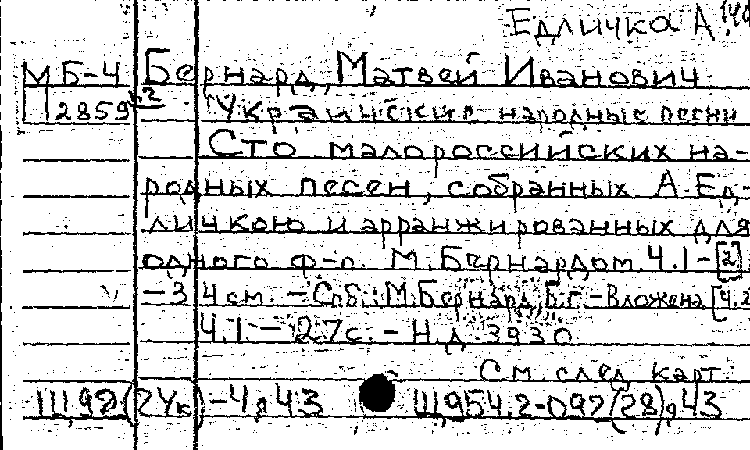 Едличка А.
МБ-4 Бернард, Матвей Иванович
12859 Украинские народные песни
Сто малороссийских на-
родных песен, собранных А. Ед-
личкою и аранжированных для
одного ф-п. М. Бернардом. Ч.1-[2]
-34 см. - Спб.: М. Бернард, Б.г. - Вложена [ч.2
Ч.1 - 27с. - Н.д. 3930
См. след. карт.
Щ92(2Ук)-4,43 Щ954.2-092(28),43